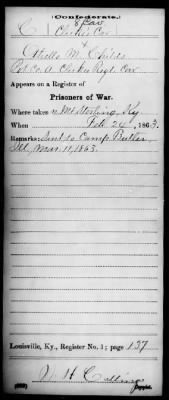 (Confederate.)
C 8 Cav
Othello M. Childs
Appears on a Register of
Prisoners of War.
Where taken Mt Sterling, Ky
When Feb. 24, 1863.
Remarks: Sent to Camp Butler
Ill Mar. 11, 1863.
Louisville, Ky., Register No. 1; page 137
Copyist.